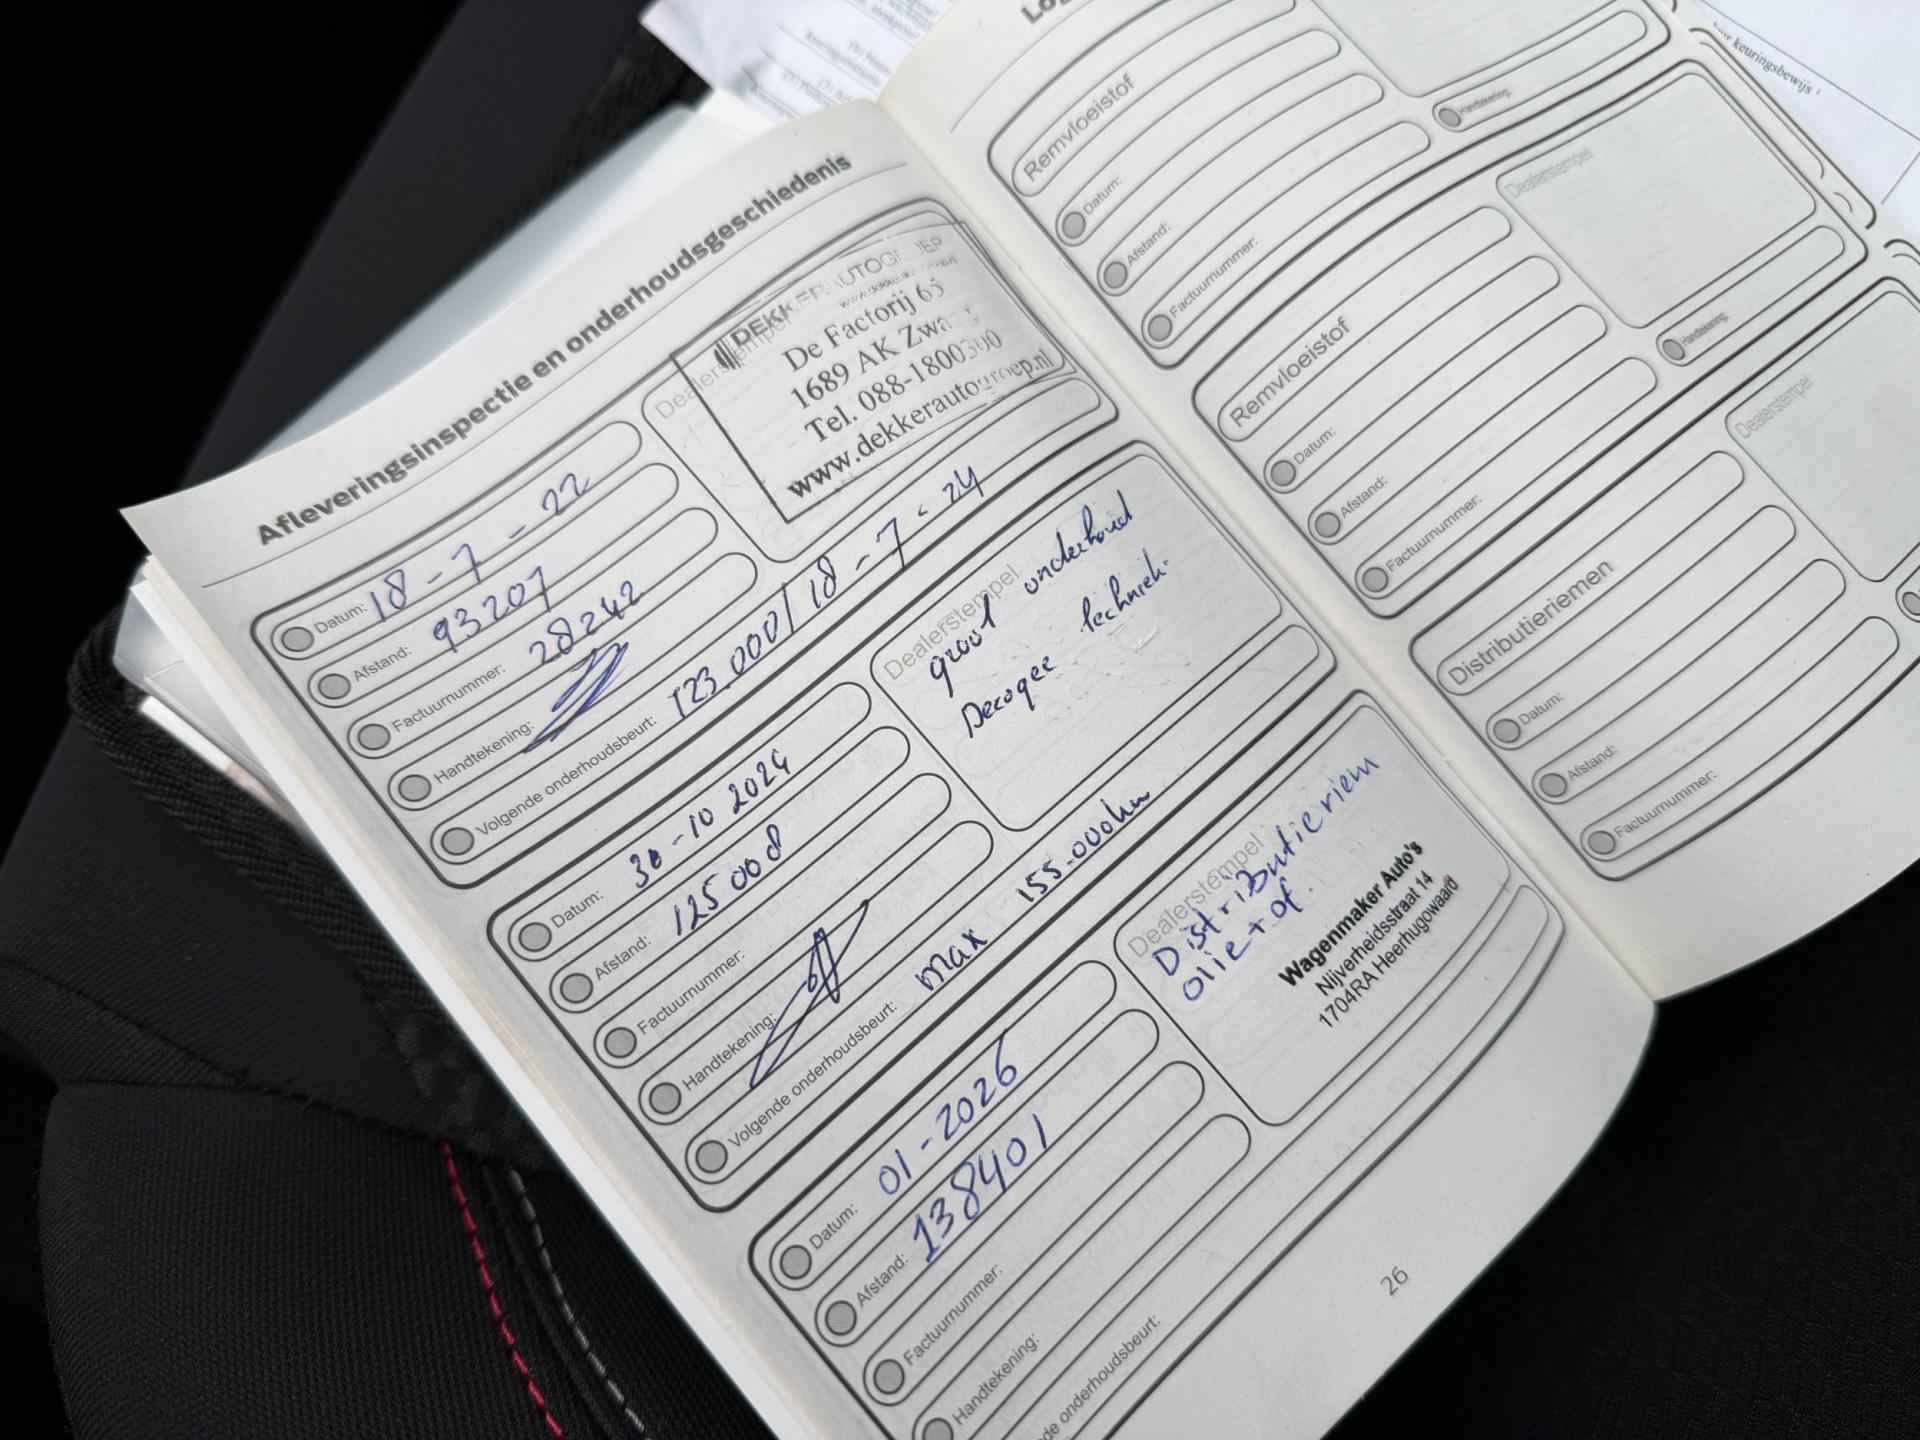 Afleveringsinspectie en onderhoudsgeschiedenis
Datum: 18-7-22
Afstand: 93207
Factuurnummer: 28242
Handtekening:
Volgende onderhoudsbeurt: 123.000/18-7-24
De Factorij 65
1689 AK
Tel. 088-1800300
www.dekkerautogroep.nl
Datum: 30-10 2024
Afstand: 125008
Factuurnummer:
Handtekening:
Volgende onderhoudsbeurt: max 155.000km
Dealerstempel
groot onderhoud
techniek.
Datum: 01-2026
Afstand: 138401
Factuurnummer:
Handtekening:
onderhoudsbeurt:
Dealerstempel
Distributieriem
olie + of.
Wagenmaker Auto's
Nijverheidsstraat 14
1704RA Heerhugowaard
26
Remvloeistof
Datum:
Afstand:
Factuurnummer:
Handtekening:
Remvloeistof
Datum:
Afstand:
Factuurnummer:
Dealerstempel
Handtekening:
Distributieriemen
Datum:
Afstand:
Factuurnummer:
Dealerstempel
keuringsbewijs